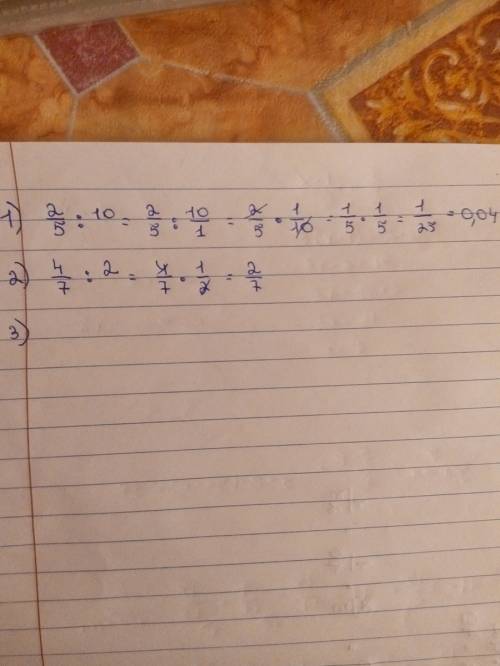 1) 2/5 : 10 = 2/5 : 10/1 = 2/5 · 1/10 = 1/5 · 1/5 = 1/25 = 0,04
2) 4/7 : 2 = 4/7 · 1/2 = 2/7
3)